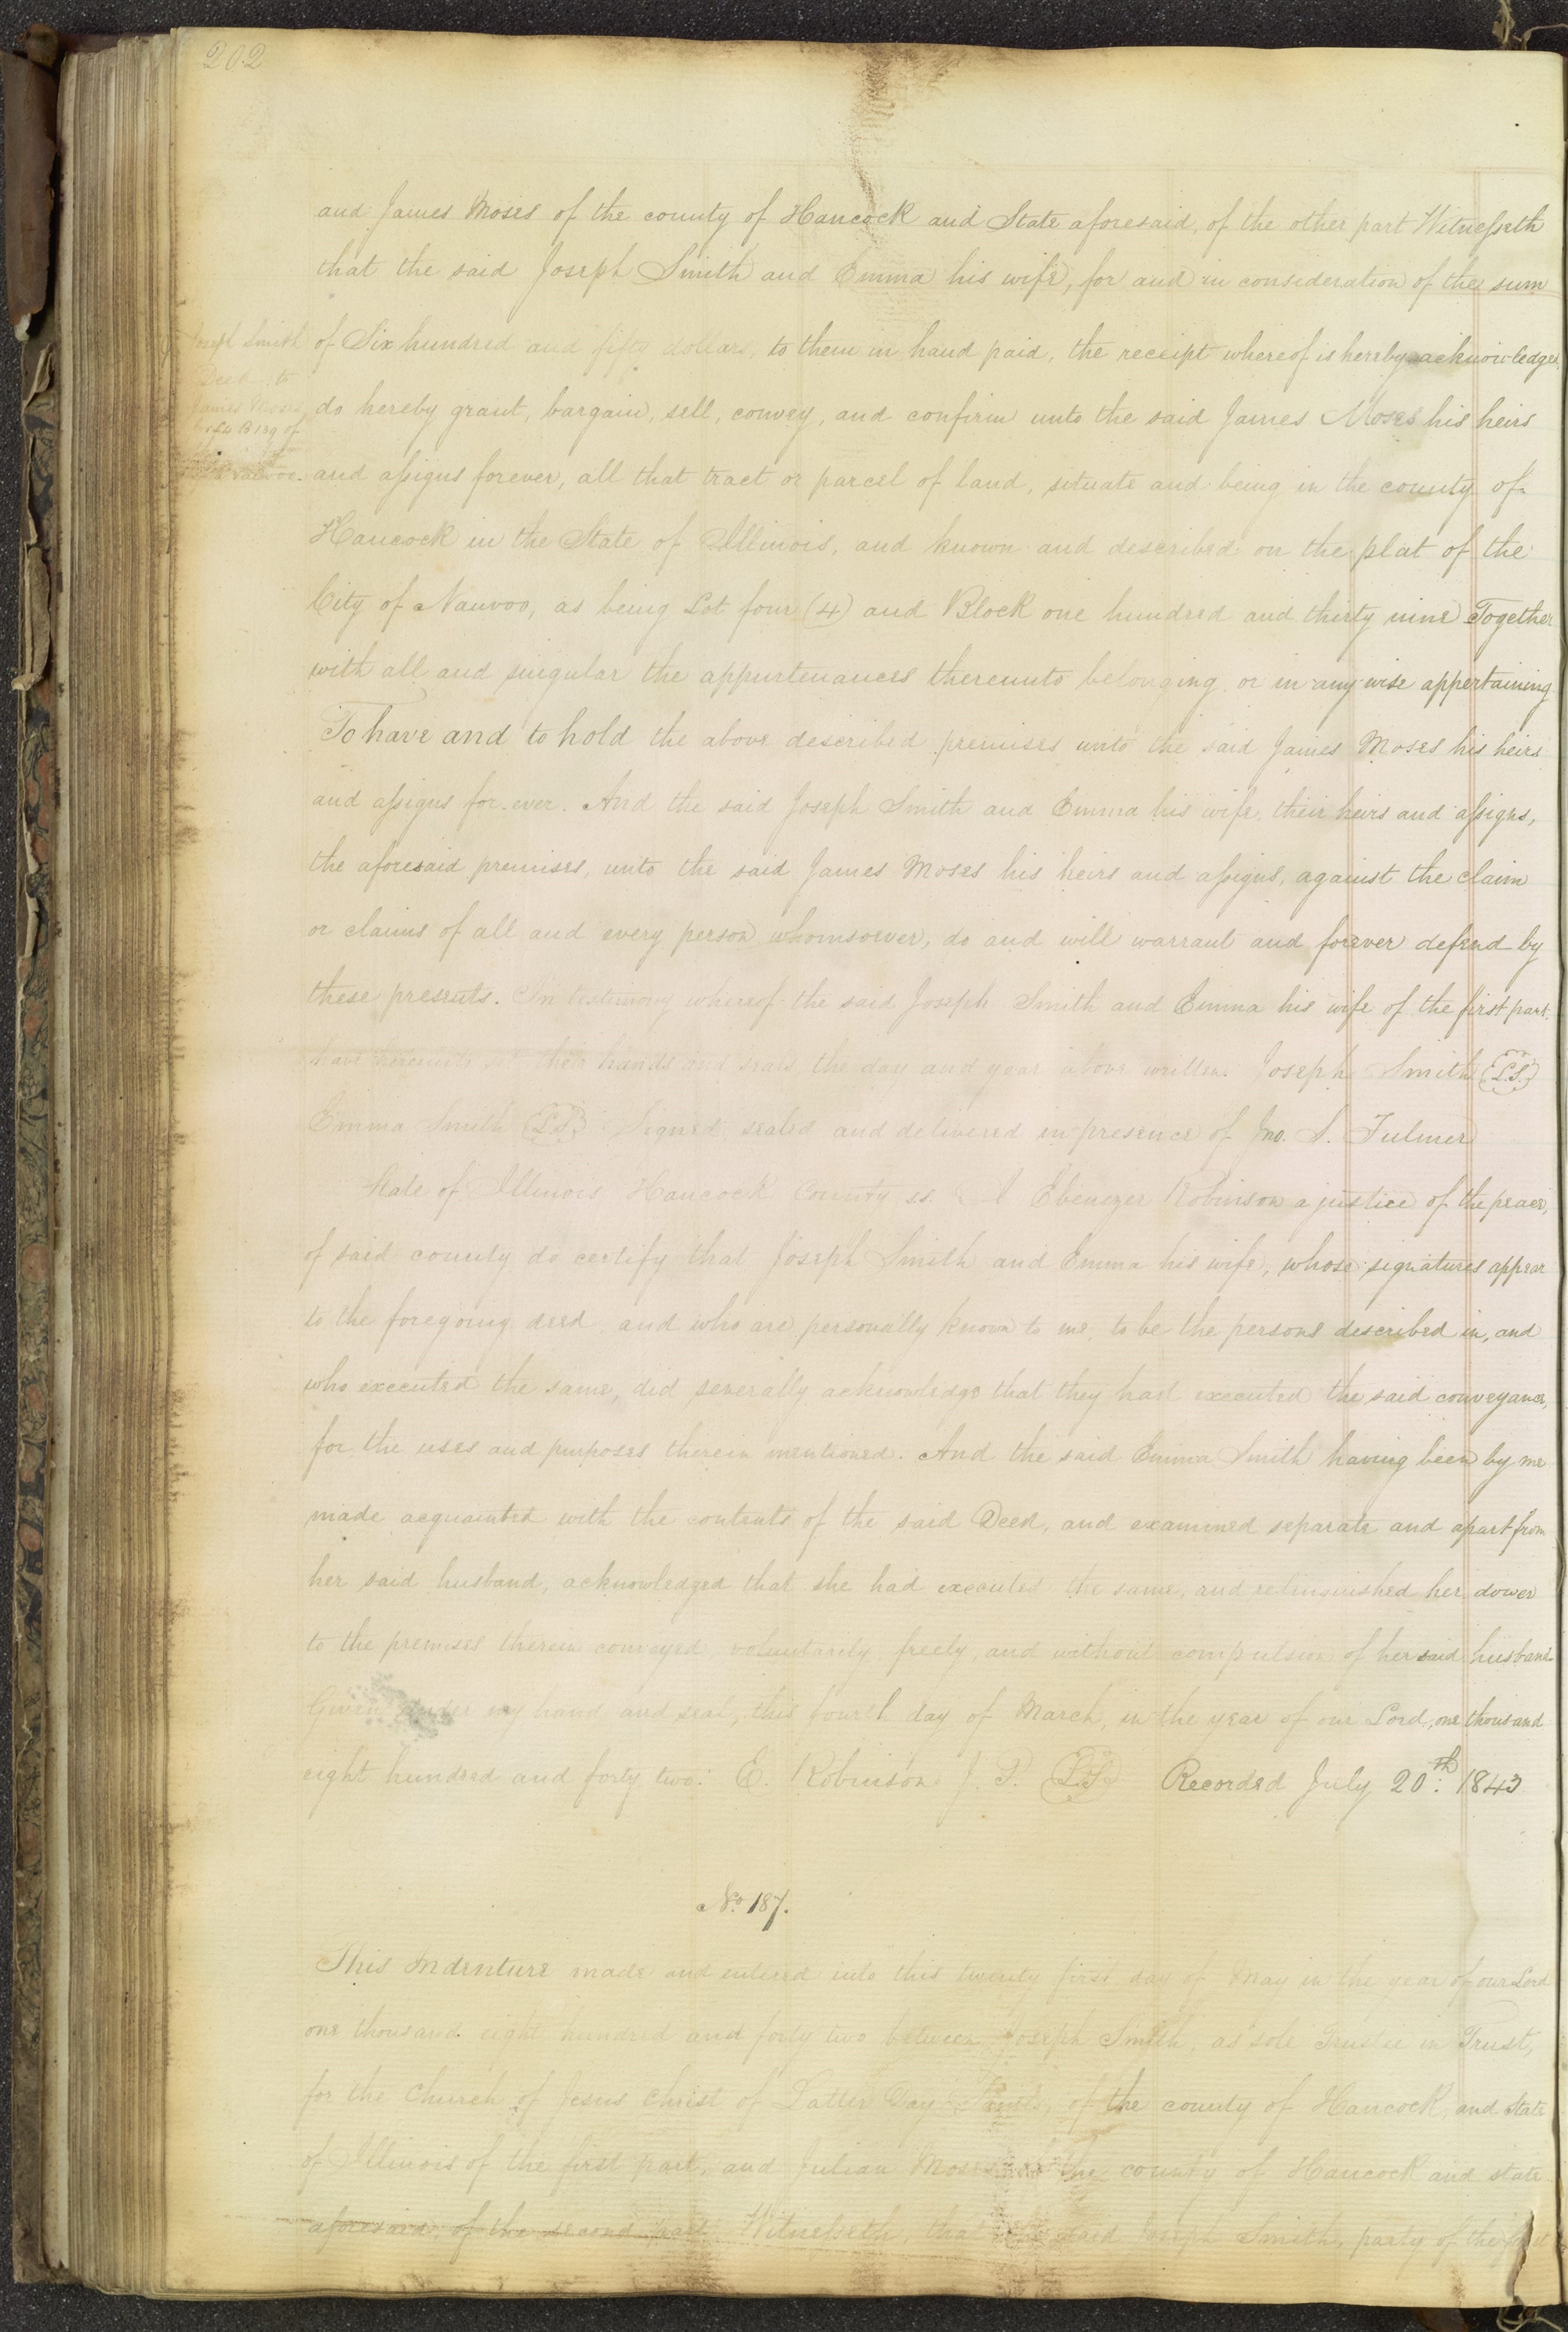 202
and James Moses of the county of Hancock and State aforesaid, of the other part Witnesseth
that the said Joseph Smith and Emma his wife, for and in consideration of the sum
of Six hundred and fifty dollars, to them in hand paid, the receipt whereof is hereby acknowledged
do hereby grant, bargain, sell, convey, and confirm unto the said James Moses his heirs
and assigns forever, all that tract or parcel of land, situate and being in the county of
Hancock in the State of Illinois, and known and described on the plat of the
City of Nauvoo, as being Lot four (4) and Block one hundred and thirty nine Together
with all and singular the appurtenances thereunto belonging or in any wise appertaining
To have and to hold the above described premises unto the said James Moses his heirs
and assigns for-ever. And the said Joseph Smith and Emma his wife, their heirs and assigns,
the aforesaid premises, unto the said James Moses his heirs and assigns, against the claim
or claims of all and every person whomsoever, do and will warrant and forever defend by
these presents. In testimony whereof the said Joseph Smith and Emma his wife of the first part.
have hereunto set their hands and seals the day and year above written. Joseph Smith L.S.
Emma Smith L.S. Signed, sealed and delivered in presence of Jno. S. Fulmer
State of Illinois Hancock County ss. I Ebenezer Robinson a justice of the peace,
of said county do certify that Joseph Smith and Emma his wife, whose signatures appear
to the foregoing deed, and who are personally known to me, to be the persons described in, and
who executed the same, did severally acknowledge that they had executed the said conveyance,
for the uses and purposes therein mentioned. And the said Emma Smith having been by me
made acquainted with the contents of the said Deed, and examined separate and apart from
her said husband, acknowledged that she had executed the same, and relinquished her dower
to the premises therein conveyed voluntarily freely, and without compulsion of her said husband.
Given under my hand and seal, this fourth day of March, in the year of our Lord, one thousand
eight hundred and forty two. E. Robinson J. P. L.S. Recorded July 20th. 1843
Joseph Smith
Deed to
James Moses
L4 B139 of
Nauvoo.
No. 187.
This Indenture made and entered into this twenty first day of May in the year of our Lord
one thousand eight hundred and forty two between Joseph Smith, as sole Trustee in Trust,
for the Church of Jesus Christ of Latter Day Saints, of the county of Hancock, and State
of Illinois of the first part, and Julian Moses of the county of Hancock and state
aforesaid, of the second part. Witnesseth, that the said Joseph Smith, party of the first